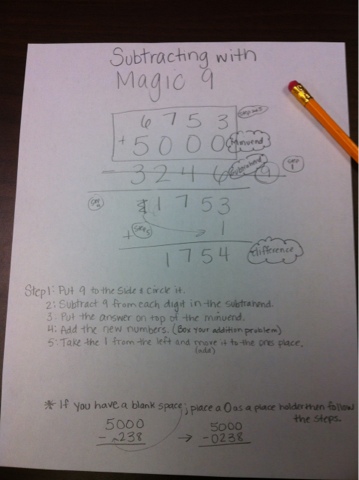 Subtracting with
Magic 9
6 7 5 3
+ 5 0 0 0 minuend
- 3 2 4 6 9
1 1 7 5 3
+ 1
1 7 5 4 difference
Step 1: Put 9 to the side & circle it.
2: Subtract 9 from each digit in the subtrahend.
3: Put the answer on top of the minuend.
4: Add the new numbers. (Box your addition problem)
5: Take the 1 from the left and move it to the ones place.
(add)
* If you have a blank space, place a 0 as a place holder then follow
the steps.
5000 5000
- 238 → - 0238